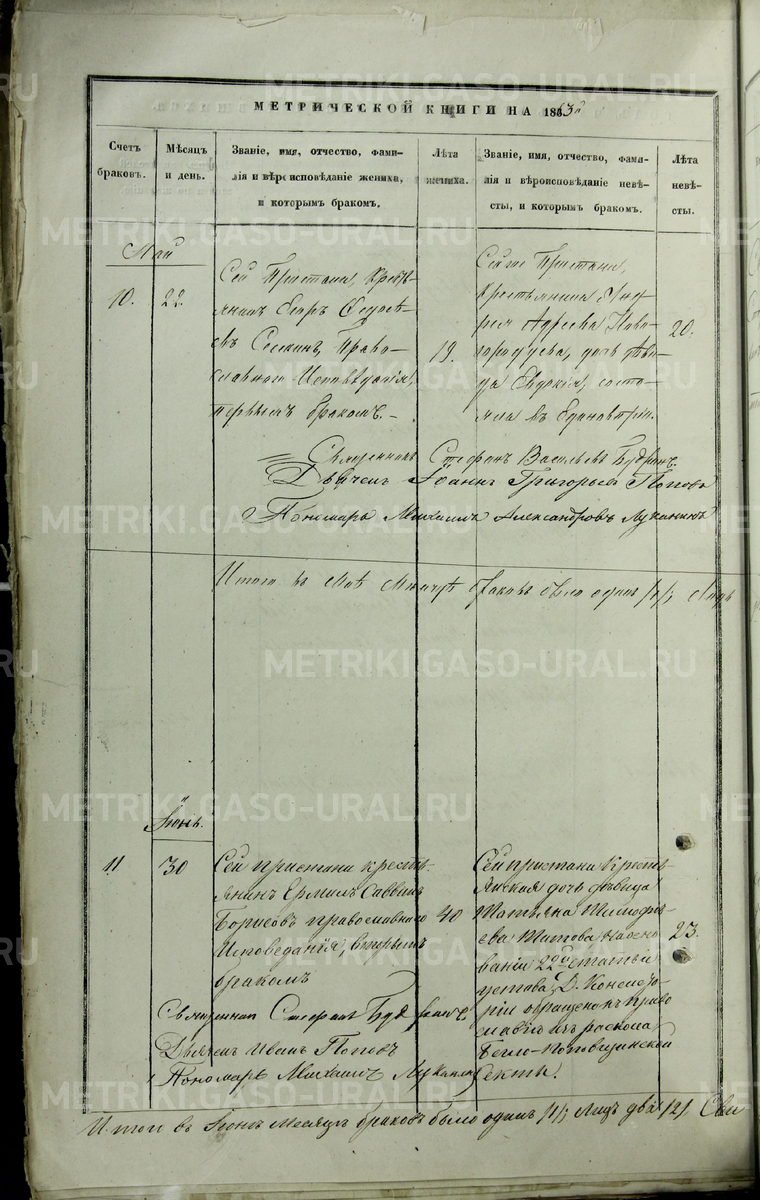 МЕТРИЧЕСКОЙ КНИГИ НА 1863й
Счетъ браковъ.
Мѣсяцъ и день.
Званіе, имя, отчество, фами-
лія и вѣроисповѣданіе жениха,
и которымъ бракомъ.
Лѣта
жениха.
Званіе, имя, отчество, фами-
лія и вѣроисповѣданіе невѣ-
сты, и которымъ бракомъ.
Лѣта
невѣ-
сты.
Май
10.
22.
Сей Пристани, Кресть-
янинъ Егоръ Ѳедосѣ-
въ Право-
славнаго Исповѣданія,
первымъ бракомъ.
19.
Сейже Пристани,
Крестьянина Анд
рея Адреева Ново-
городцева, дочь дѣви-
ца Евдокія, состо-
яла въ Единовѣріи.
20.
Священникъ Стефанъ Васильевъ
Дьячекъ Іоаннъ Григорьевъ Поповъ
Пономарь Михаилъ Александровъ Луканинъ
Итого въ Маѣ Месяцѣ браковъ было одинъ /1/, лицъ
Іюнь.
11
30
Сей пристани кресть-
янинъ Ермилъ Саввинъ
Борисовъ православнаго
Исповеданія, вторымъ
бракомъ
40
Сей Пристани Кресть-
янская дочь дѣвица
Татьяна Тимофѣ-
ева Титова, на осно-
ваніи 22й статьи
устава Д. Консисто-
ріи обращено къ право
славію изъ раскола
Бегло-Поповщинской
Секты.
23.
Священникъ Стефанъ
Дьячекъ Иванъ Поповъ
Пономарь Михаилъ Луканинъ
Итого въ Іюнѣ Месяцѣ браковъ было одинъ /1/, лицъ два /2/.
METRIKI.GASO-URAL.RU